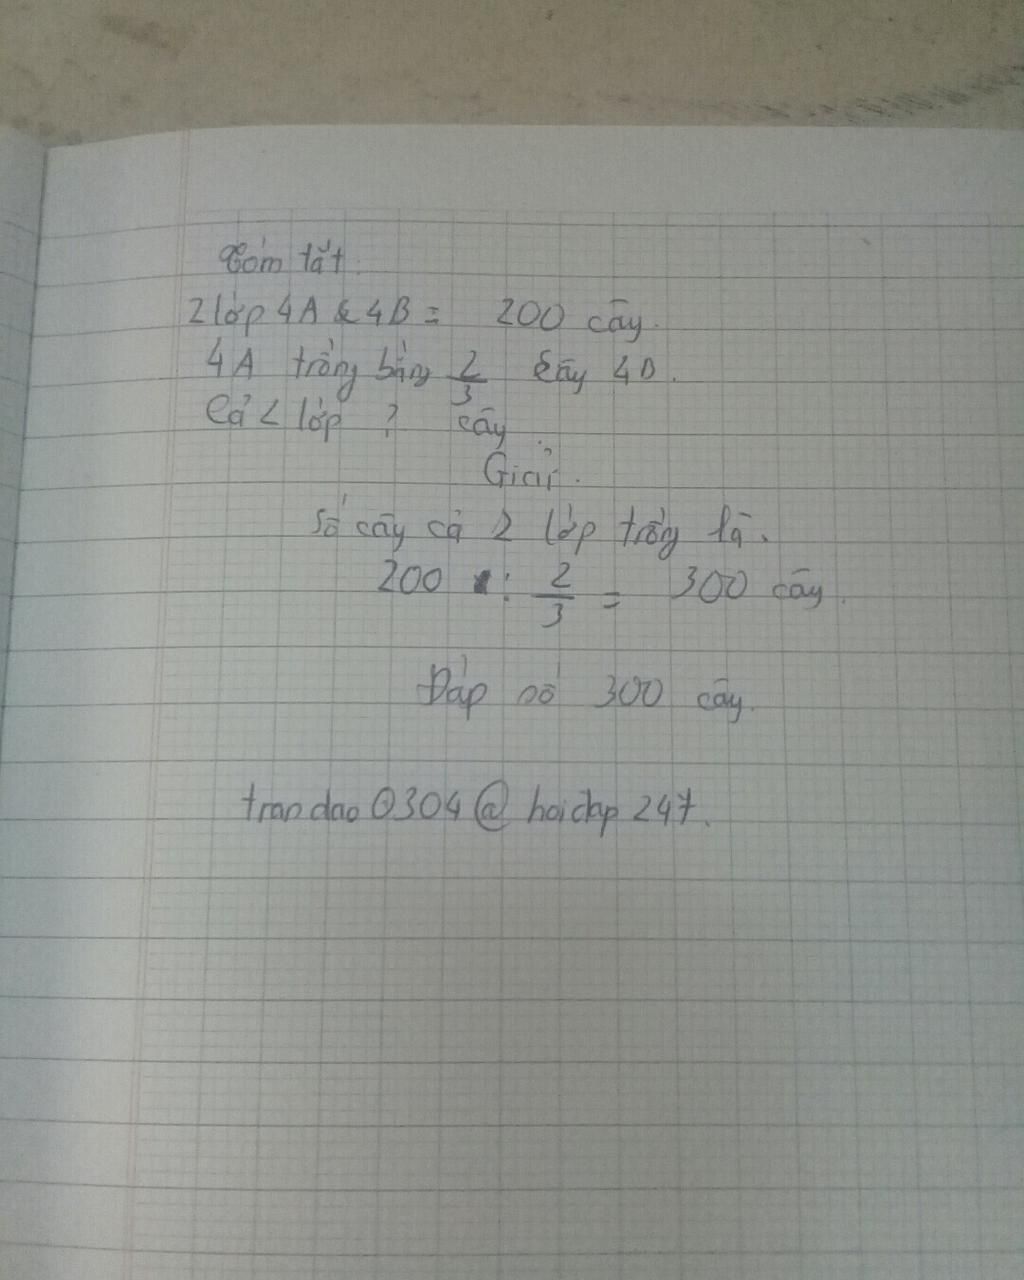 Tóm tắt.
2 lớp 4A & 4B = 200 cây.
4A trồng bằng 2/3 cây 4B.
Cả 2 lớp ? cây.
Giải.
Số cây cả 2 lớp trồng là.
200 : 2/3 = 300 cây.
Đáp số 300 cây.
trandao0304@hoidap247.